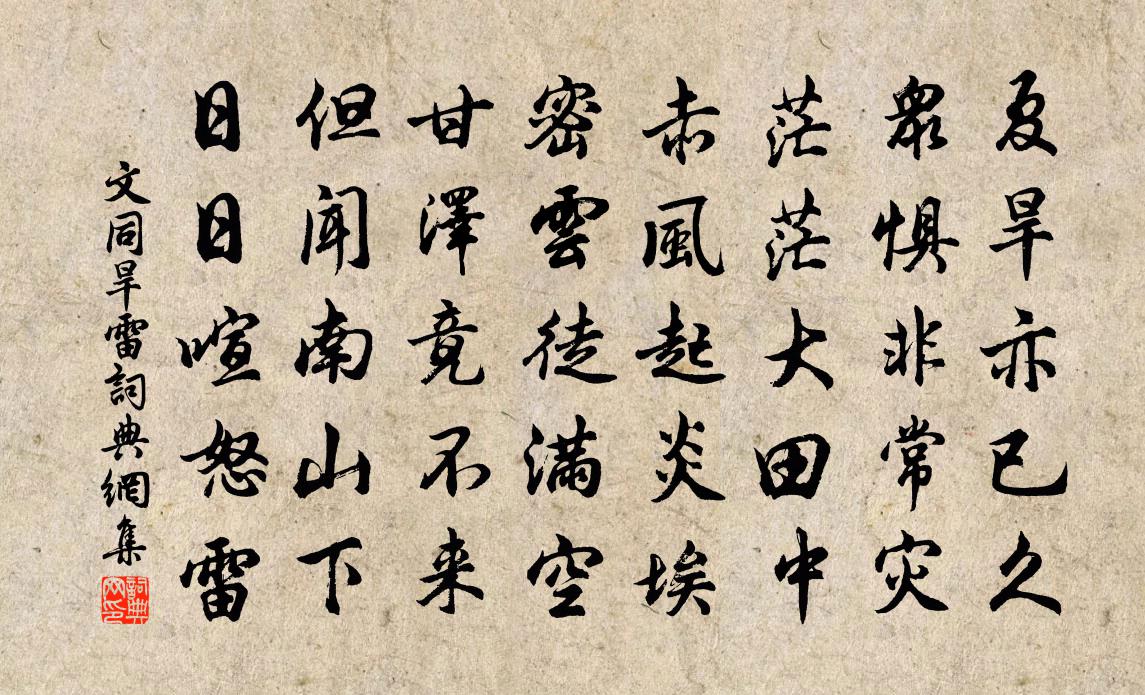 夏旱亦已久
衆惧非常灾
茫茫大田中
赤風起炎埃
密雲徒滿空
甘澤竟不来
但聞南山下
日日喧怒雷
文同旱雷詞典網集
詞典網印